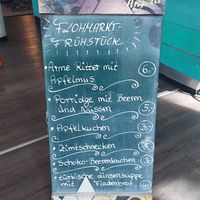 FLOHMARKT-
FRÜHSTÜCK
• Arme Ritter mit
Apfelmus 6,-
• Porridge mit Beeren
und Nüssen 5,-
• Apfelkuchen 3,-
• Zimtschnecken
• Schoko-Beerenkuchen 3,-
• türkische Linsensuppe
mit Fladenbrot 4,-